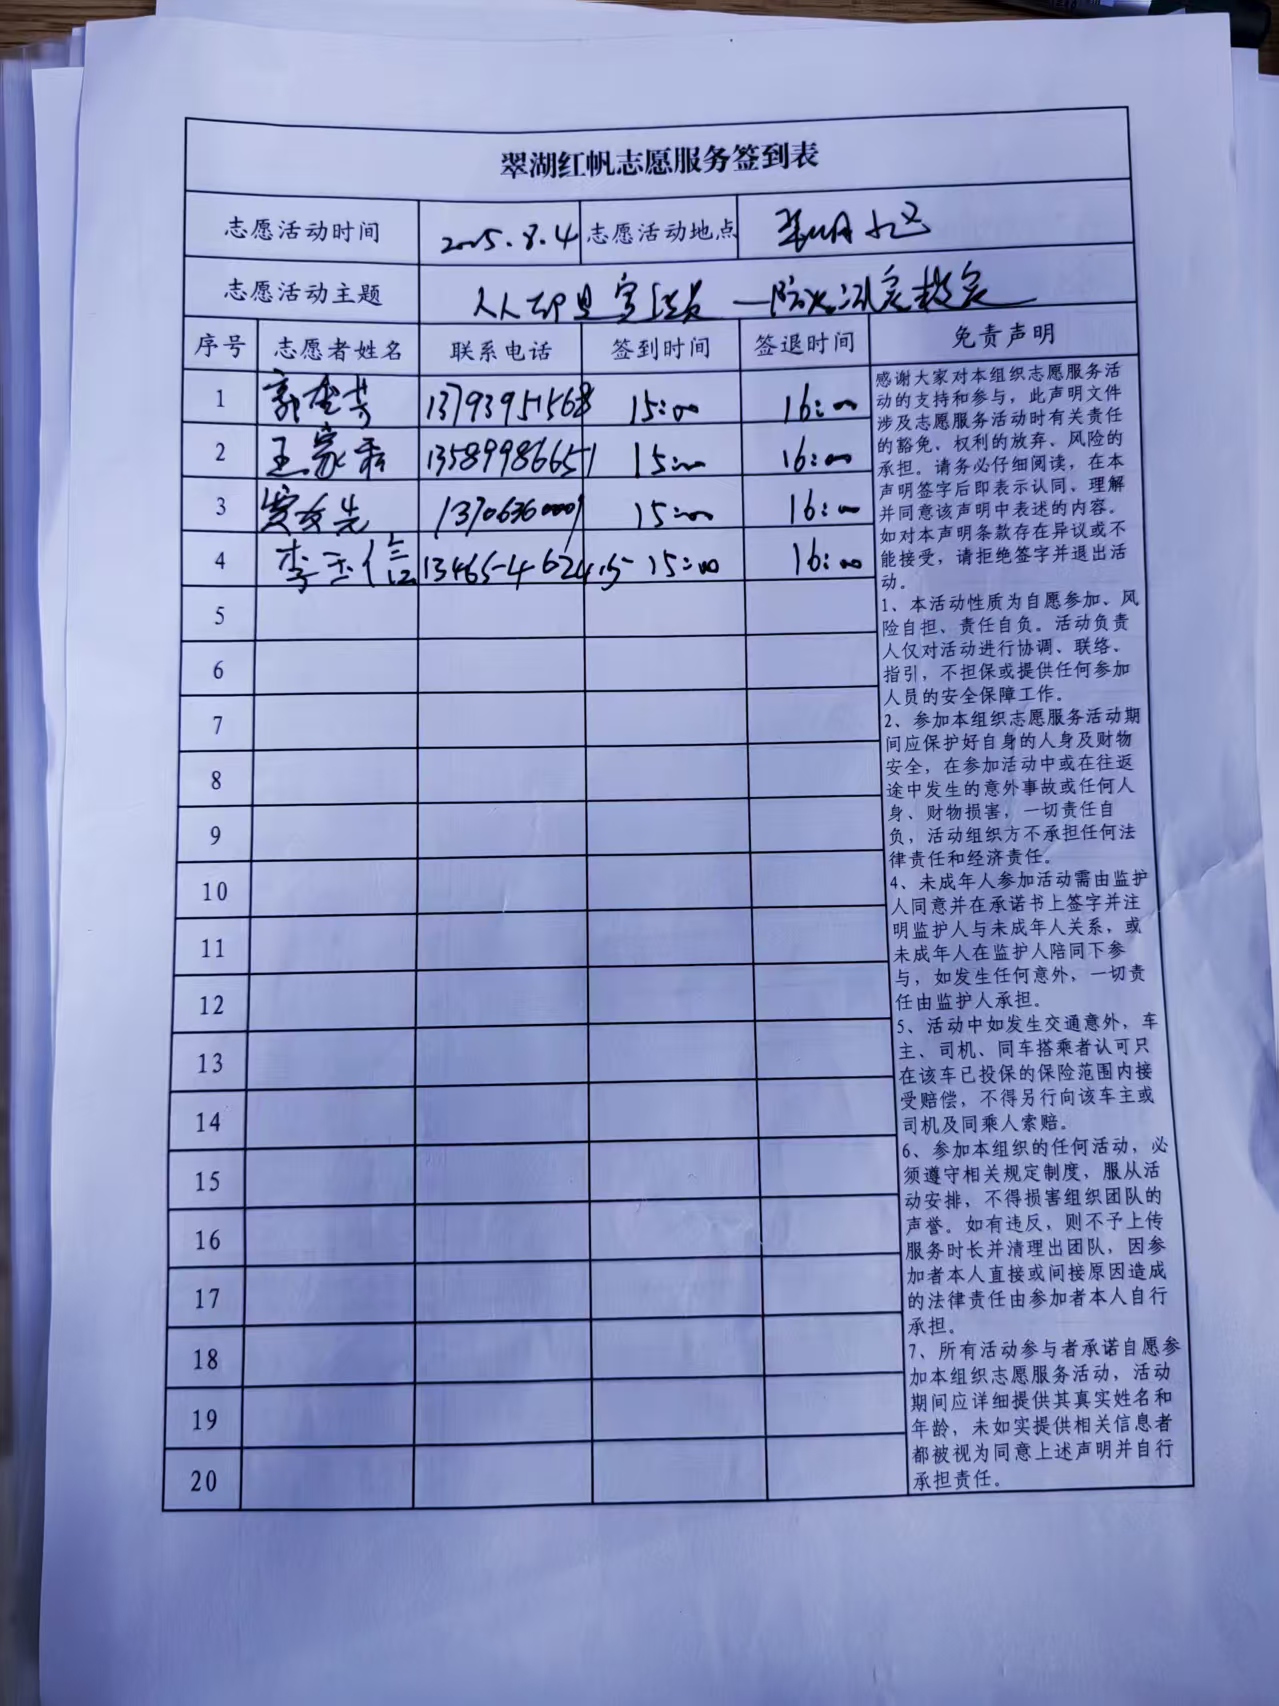 翠湖红帆志愿服务签到表
志愿活动时间 2025.8.4 志愿活动地点 小区
志愿活动主题 人人都是宣传员
序号 志愿者姓名 联系电话 签到时间 签退时间 免责声明
1 13793951568 15:00 16:00
2 王家 13589986651 15:00 16:00
3 13706360009 15:00 16:00
4 李玉信 13465462415 15:00 16:00
5
6
7
8
9
10
11
12
13
14
15
16
17
18
19
20
感谢大家对本组织志愿服务活
动的支持和参与，此声明文件
涉及志愿服务活动时有关责任
的豁免、权利的放弃、风险的
承担。请务必仔细阅读，在本
声明签字后即表示认同、理解
并同意该声明中表述的内容。
如对本声明条款存在异议或不
能接受，请拒绝签字并退出活
动。
1、本活动性质为自愿参加、风
险自担、责任自负。活动负责
人仅对活动进行协调、联络、
指引，不担保或提供任何参加
人员的安全保障工作。
2、参加本组织志愿服务活动期
间应保护好自身的人身及财物
安全，在参加活动中或在往返
途中发生的意外事故或任何人
身、财物损害，一切责任自
负，活动组织方不承担任何法
律责任和经济责任。
4、未成年人参加活动需由监护
人同意并在承诺书上签字并注
明监护人与未成年人关系，或
未成年人在监护人陪同下参
与，如发生任何意外，一切责
任由监护人承担。
5、活动中如发生交通意外，车
主、司机、同车搭乘者认可只
在该车已投保的保险范围内接
受赔偿，不得另行向该车主或
司机及同乘人索赔。
6、参加本组织的任何活动，必
须遵守相关规定制度，服从活
动安排，不得损害组织团队的
声誉。如有违反，则不予上传
服务时长并清理出团队，因参
加者本人直接或间接原因造成
的法律责任由参加者本人自行
承担。
7、所有活动参与者承诺自愿参
加本组织志愿服务活动，活动
期间应详细提供其真实姓名和
年龄，未如实提供相关信息者
都被视为同意上述声明并自行
承担责任。